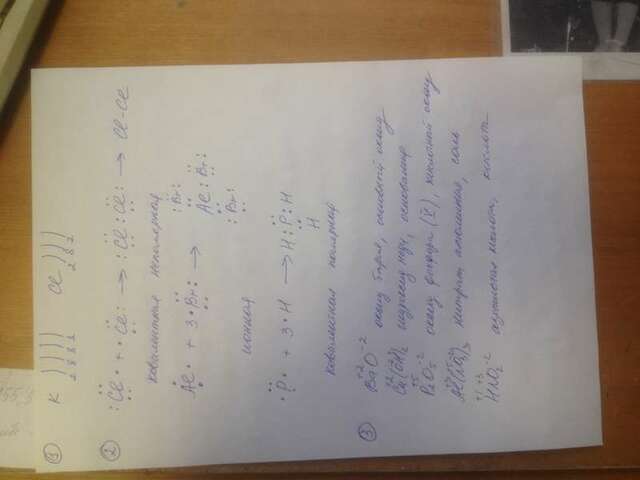 ① K ) ) ) ) Cl ) ) )
2 8 8 1 2 8 7
② :Cl• + •Cl: → :Cl:Cl: → Cl-Cl
ковалентная неполярная
Al• + 3•Br: → :Br:
Al:Br:
:Br:
ионная
•P• + 3•H → H:P:H
H
ковалентная полярная
③ +2 -2
BaO оксид бария, основный оксид
Cu(OH)₂ гидроксид меди, основание
+5 -2
P₂O₅ оксид фосфора (V), кислотный оксид
Al(NO₃)₃ нитрат алюминия, соль
+1 +3 -2
HNO₂ азотистая кислота, кислот.